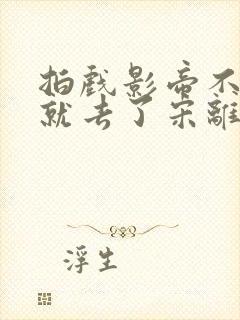 拍戏影帝不
就去了宋離
浮生